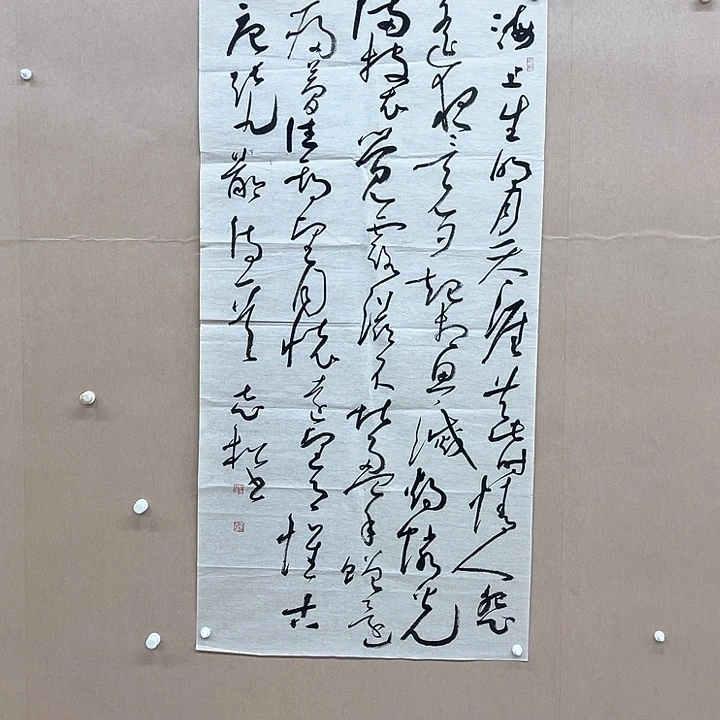 海上生明月天涯共此时情人怨
遥夜竟夕起相思灭烛怜光
满披衣觉露滋不堪盈手赠还
寝梦佳期望月怀远望怀古
唐张九龄诗一首 志松书